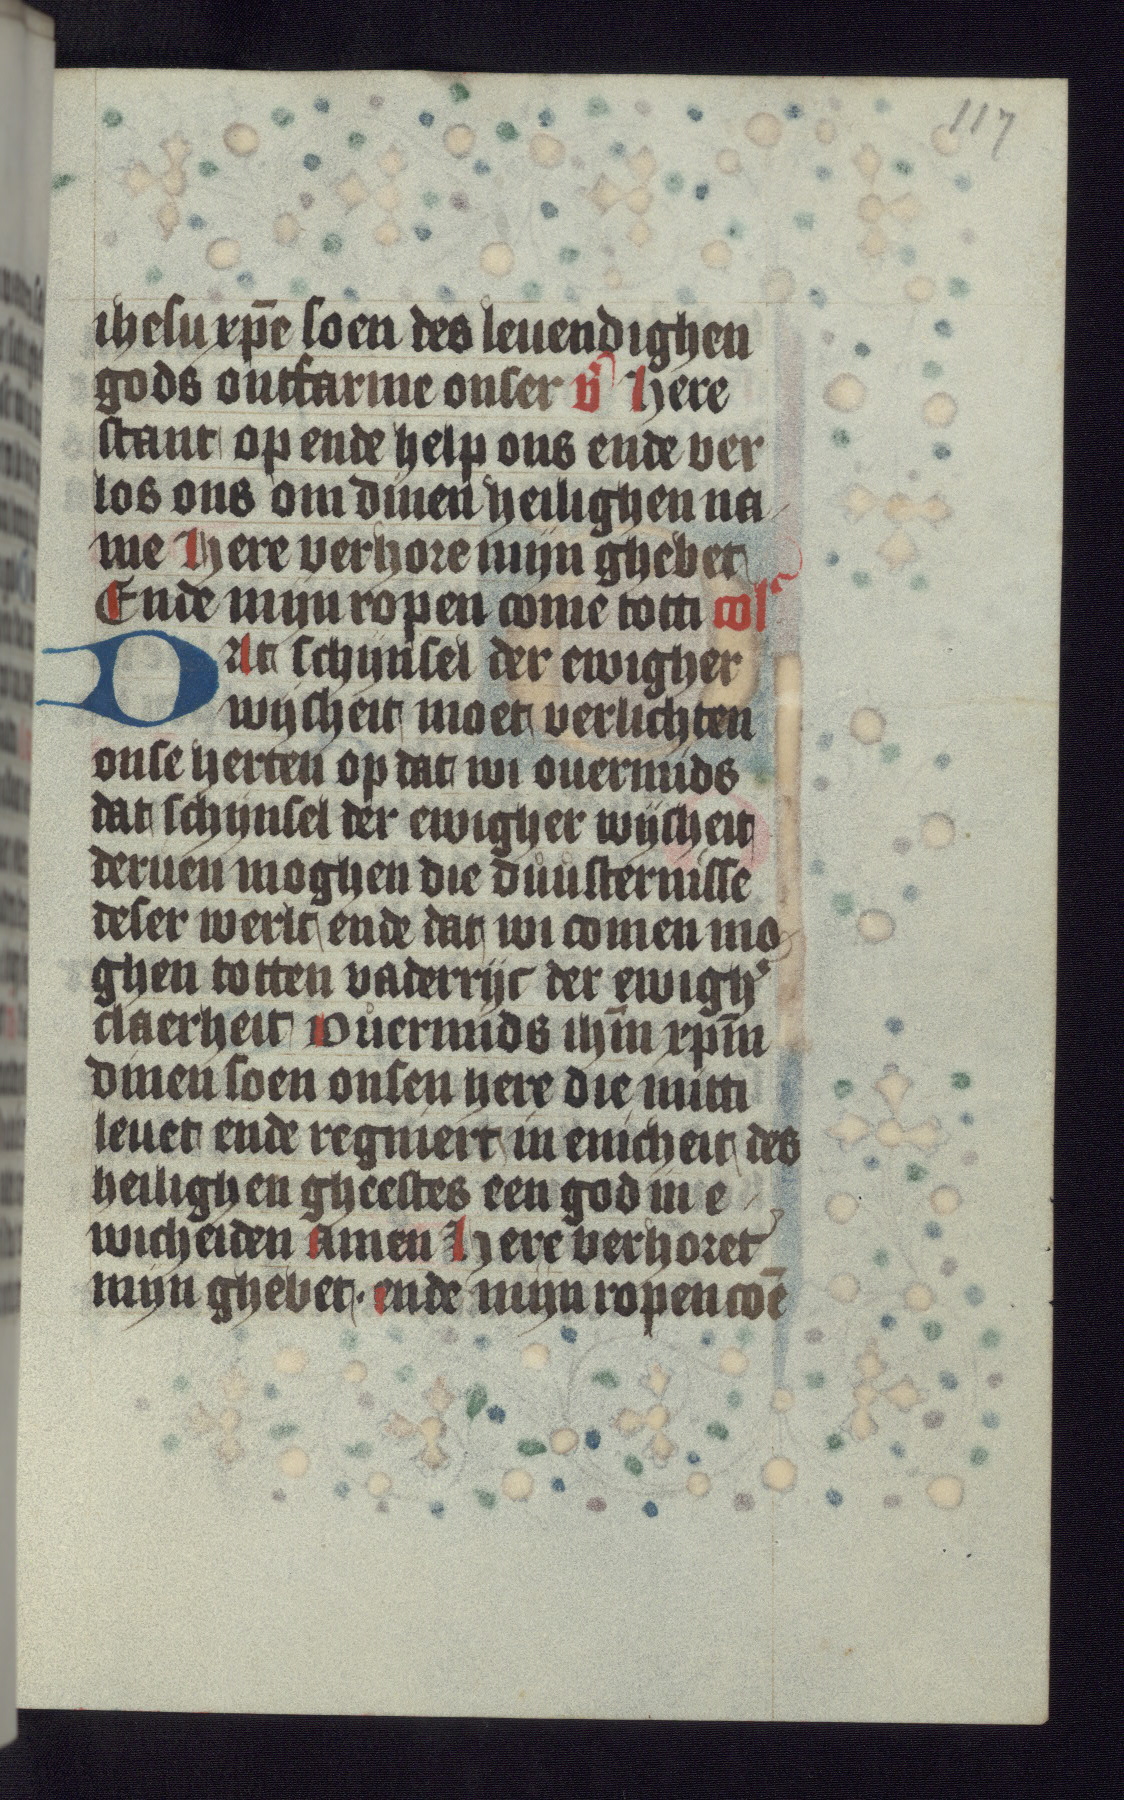 117
ihesu xp̄e soen des leuendighen
gods ontfarme onser v̄ Here
stant op ende help ons ende ver
los ons om dinen heilighen na
me Here verhore mijn ghebet
Ende mijn ropen come totti col̄
Dat schijnsel der ewigher
wijsheit moet verlichten
onse herten op dat wi ouermids
dat schijnsel der ewigher wijsheit
deruen moghen die duusternisse
deser werlt ende dat wi comen mo
ghen totten vaderrijc der ewigh᾽
claerheit Ouermids ih̄m xp̄m
dinen soen onsen here die mitti
leuet ende regniert in enicheit des
heilighen gheestes een god in e
wicheiden Amen Here verhoret
mijn ghebet. ende mijn ropen cōe